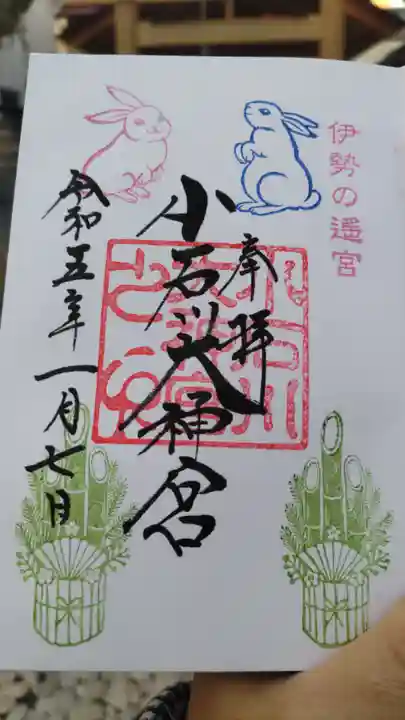 伊勢の遥宮
奉拝
小石川大神宮
令和五年一月七日